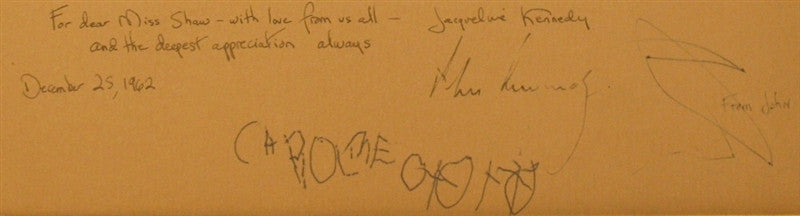 For dear Miss Shaw - with love from us all -
and the deepest appreciation always
Jacqueline Kennedy
December 25, 1962
John Kennedy
From John
CAROLINE